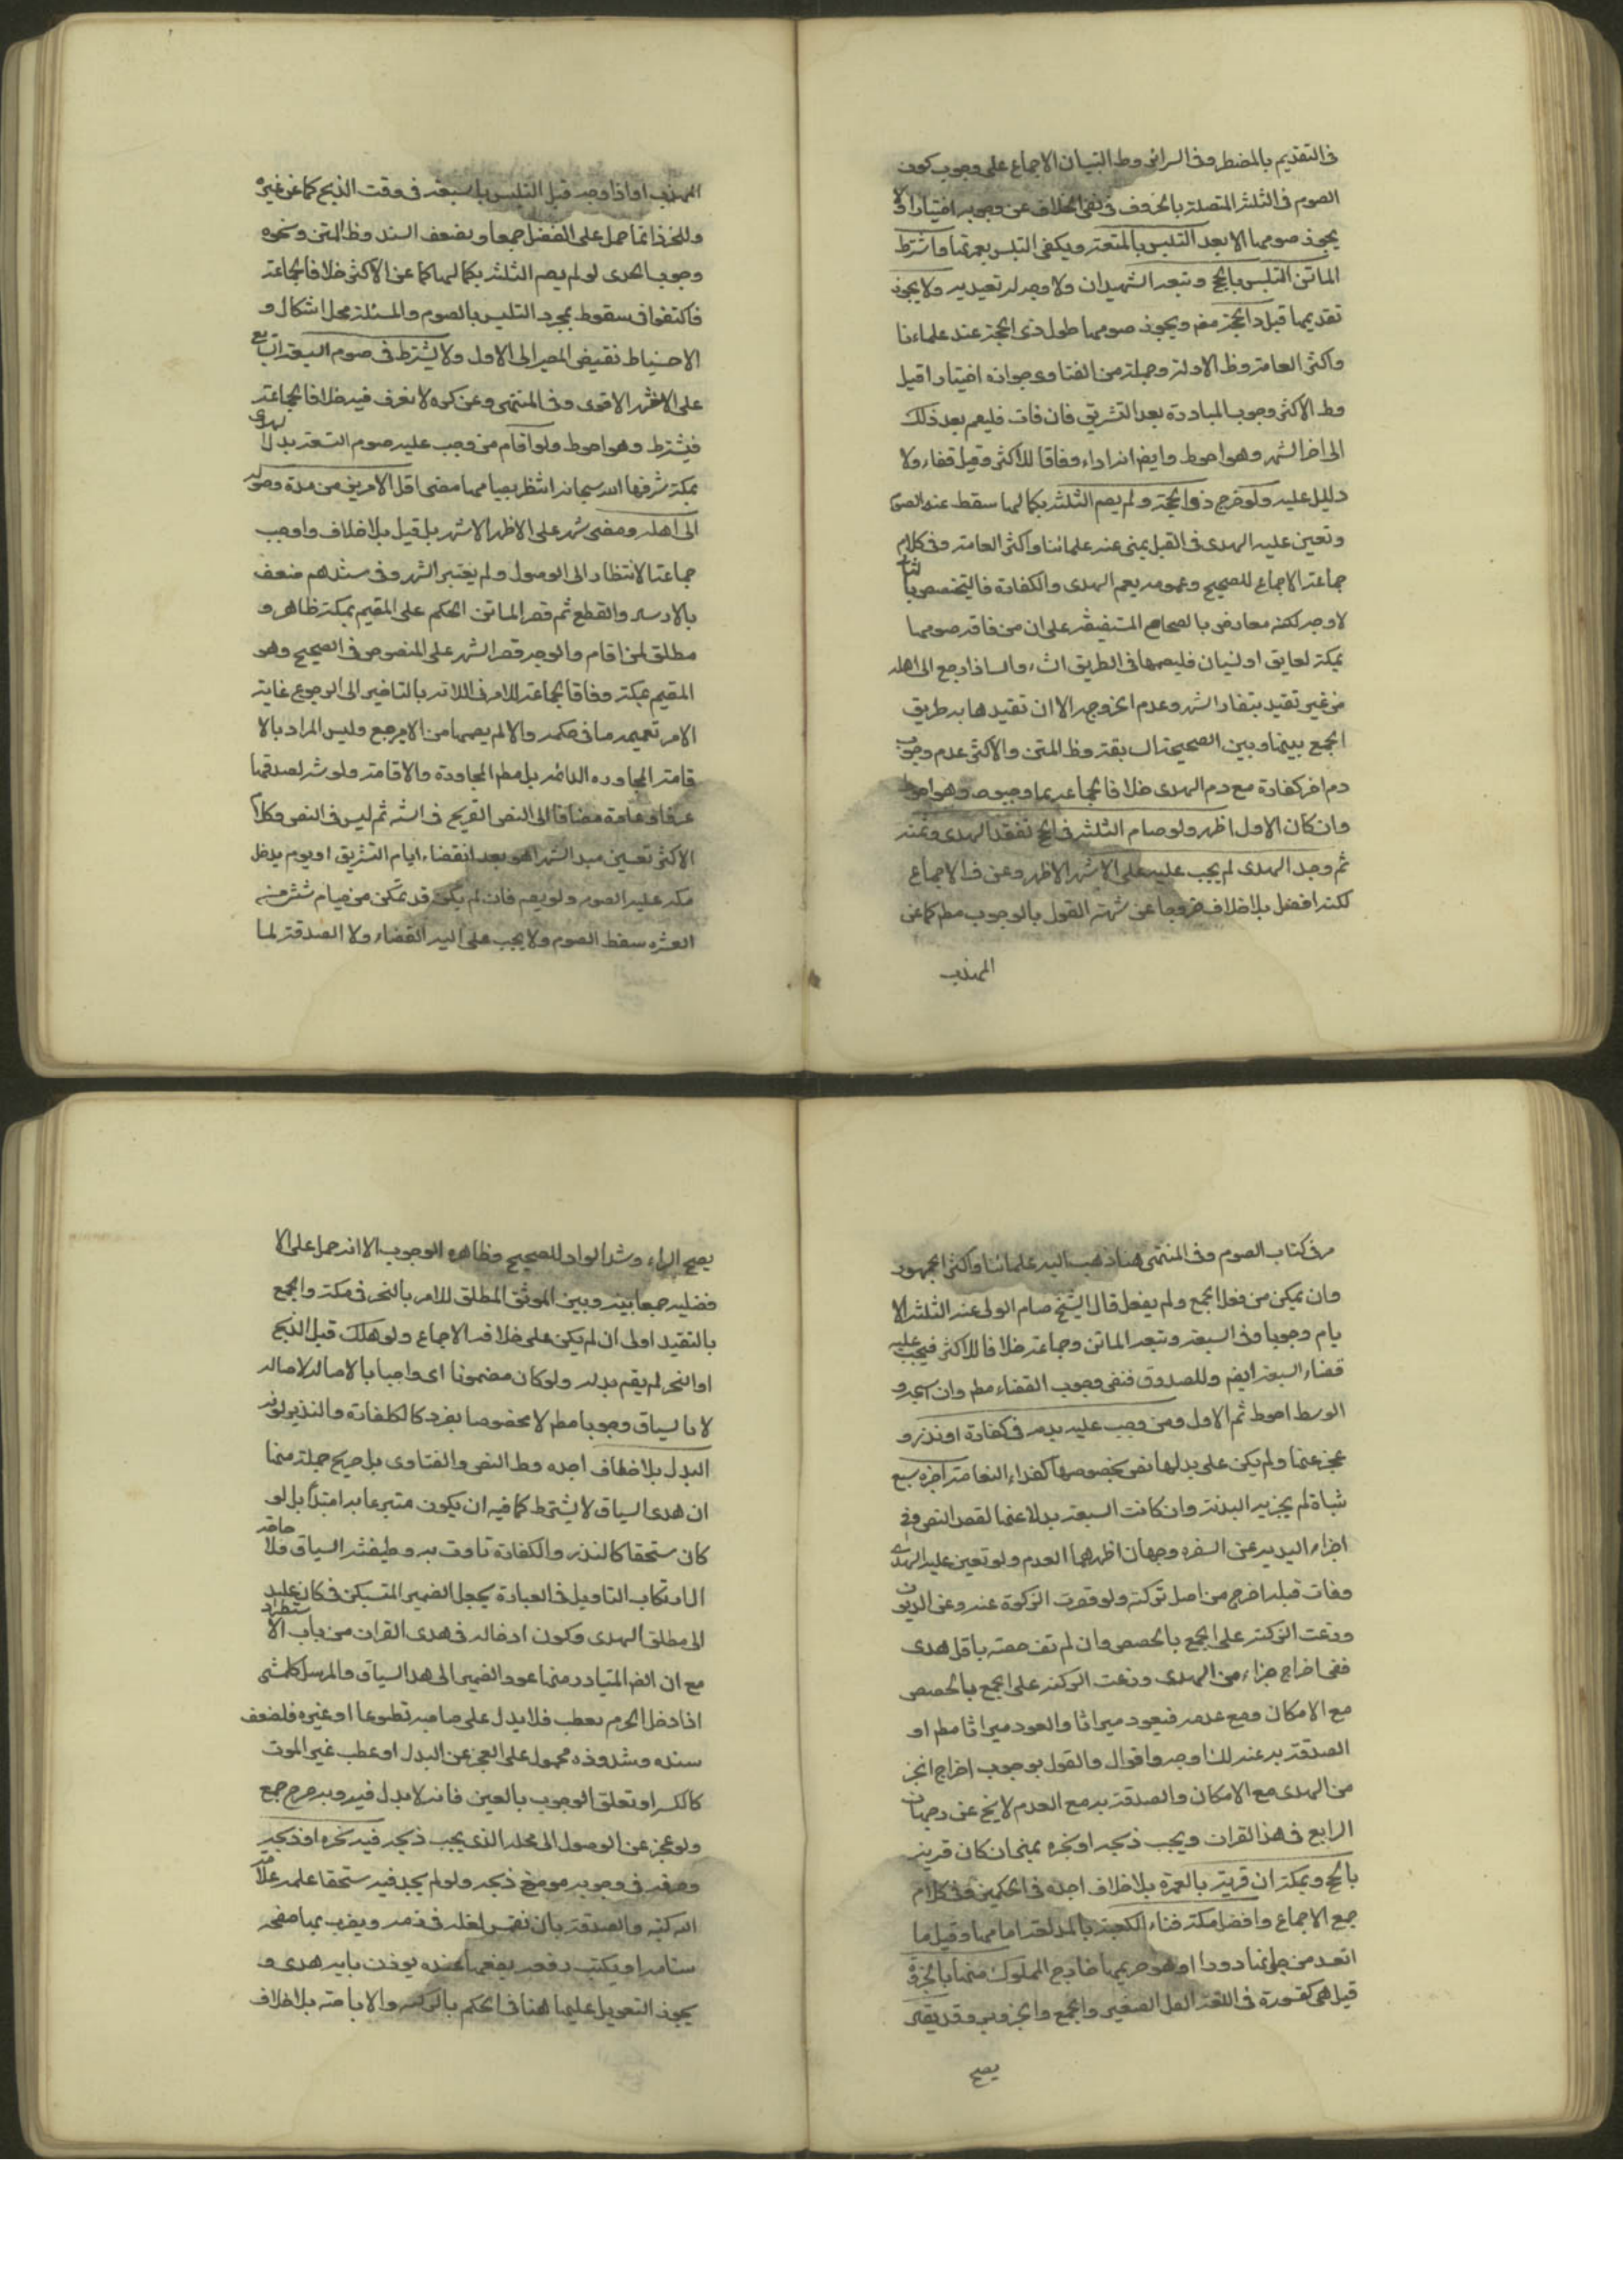 فى التقديم بالمضطر وفى السرائر وظ التبيان الاجماع على وجوب كون
الصوم فى الثلثة المتصلة بالخروف فى نفى الخلاف عن وجوبه اختيارا ولا
يجوز صومها الا بعد التلبس بالمتعة ويكفى التلبس بعمرتها واشترط
الماتن التلبس بالحج وتبعه الشهيدان ولا وجه له تعيديه ولا يجوز
تقديمها قبل ذى الحجة مفهم ويجوز صومها طول ذى الحجة عند علماءنا
واكثر العامة وظ الادلة وجملة من الفتاوى جوازه اختيارا قيل
وظ الاكثر وجوب المبادرة بعد التشريق فان فات فليصم بعد ذلك
الى اخر الشهر وهو احوط وايضا انه اداء وفاقا للاكثر وقيل قضاء ولا
دليل عليه ولو خرج ذو الحجة ولم يصم الثلثة بكمالها سقط عنه الصوم
وتعين عليه الهدى فى القبل بمنى عند علمائنا واكثر العامة وفى كلام
جماعة الاجماع للصحيح وعمومه يعم الهدى والكفارة فالتخصيص بالثانى
لا وجه لكنه معارض بالصحاح المستفيضة على ان من فاته صومها
بمكة لعايق او نسيان فليصمها فى الطريق انشاء والا اذا رجع الى اهله
من غير تقييد ببقاء الشهر وعدم الخروجه الا ان تقييدها به طريق
الجمع بينها وبين الصحيحة السابقة وظ المتن والاكثر عدم وجوب
دم اخر كفارة مع دم الهدى خلافا لجماعة وهو احوط
وان كان الاول اظهر ولو صام الثلثة فى الحج لفقد الهدى وثمنه
ثم وجد الهدى لم يجب عليه على الاشهر الاظهر وعن ف الاجماع
لكنه افضل بلا خلاف خروجا عن شبهة القول بالوجوب مطم كما عن
المهذب
المهذب او اذا وجد قبل التلبس بالسبعة فى وقت الذبح كما عن غيره
وللخبر انما حمل على الفضل جمعا ولضعف السند وظ المتن ونحوه
وجوب الهدى لو لم يصم الثلثة بكمالها كما عن الاكثر خلافا لجماعة
فاكتفوا فى سقوطه بمجرد التلبس بالصوم والمسئلة محل اشكال و
الاحتياط تقتضى المصير الى الاول ولا يشترط فى صوم السبعة التتابع
على الاشهر الاقوى وفى المنتهى وعن كره لا نعرف فيه خلافا لجماعة
فيشترط وهو احوط ولو اقام من وجب عليه صوم السبعة بدل الهدى
بمكة شرفها الله سبحانه انتظر بصيامها مضى اقل الامرين من مدة وصوله
الى اهله ومضى شهر على الاظهر الاشهر بل قيل بلا خلاف واوجب
جماعة الانتظار الى الوصول ولم يعتبر الشهر وفى سندهم ضعف
بالارسال والقطع ثم قصر الماتن الحكم على المقيم بمكة ظاهر و
مطلق لمن اقام والوجه قصر الشهر على المنصوص فى الصحيح وهو
المقيم بمكة وفاقا لجماعة للامر فى اللاية بالتاخير الى الرجوع غاية
الامر تعميمه ما فى حكمه والا لم يصمها من لا يرجع وليس المراد بالا
قامة المجاورة الدائمة بل مطم المجاورة والاقامة ولو شهرا لصدقها
عرفا وعادة مضافا الى النص القريح فى الشه ثم ليس فى النص وكلام
الاكثر تعيين مبدء الشهر اهو بعد انقضاء ايام التشريق او يوم يدخل
مكة عليه الصوم ولو يصم فان لم يكن قد تمكن من صيام شئ من
العشرة سقط الصوم ولا يجب على الولى القضاء ولا الصدقة لما
مر فى كتاب الصوم وفى المنتهى هنا ذهب اليه علمائنا واكثر الجمهور
وان تمكن من فعل الجمع ولم يفعل قال الشيخ صام الولى عنه الثلثة الا
يام وجوبا وفى السبعة وتبعه الماتن وجماعة خلافا للاكثر فيجب عليه
قضاء السبعة ايضم وللصدوق فنفى وجوب القضاء مطم وان استحبه و
الوسط احوط ثم الاول ومن وجب عليه بدنة فى كفارة او نذر و
عجز عنها ولم يكن على بدلها نص بخصوصها كفداء النعامة اجزءه سبع
شياة لم يجزيه البدنة وان كانت السبعة بدلا عنها لفقد النص وفى
اجزاء البدنة عن البقرة وجهان اظهرهما العدم ولو تعين عليه الهدى
ومات قبله اخرج من اصل تركته ولو قصرت التركة عنه وعن الديون
وزعت التركة على الجمع بالحصص وان لم تف حصته باقل هدى
ففى اخراج جزاء من الهدى وزعت التركة على الجمع بالحصص
مع الامكان ومع عدمه فيعود ميراثا والعود ميراثا مطم او
الصدقة به عنه ثلثة اوجه واقوال والقول بوجوب اخراج الجزء
من الهدى مع الامكان والصدقة به مع العدم لا يخ عن رجحان
الرابع فى هدى القران ويجب ذبحه او نحره بمنى ان كان قرنه
بالحج وبمكة ان قرنه بالعمرة بلا خلاف اجده فى الحكمين وفى كلام
جمع الاجماع وافضل مكة فناء الكعبة بالمد سعة امامها وقيل ما
امتد من جوانبها دورا وهو حريمها خارج المملوك منها بالحزورة
قيل هى كقسورة فى اللغة التل الصغير والجمع والحزاور وقد يقال
يصح
يصح الراء وشد الواو للصحيح وظاهره الوجوب الا انه حمل على الا
فضلية جمعا بينه وبين الموثق المطلق للامر بالنحر فى مكة والجمع
بالتقييد اولى ان لم يكن على خلافه الاجماع ولو هلك قبل الذبح
او النحر لم يقم بدله ولو كان مضمونا اى واجبا بالاصالة لاصالة
لا بالسياق وجوبا مطم لا مخصوصا بفرد كالكفارة والنذر لزمه
البدل بلا خلاف اجده وظ النص والفتاوى بل صريح جملة منها
ان هدى السياق لا يشترط كما فيه ان يكون متبرعا به ابتداء بل لو
كان مستحقا كالنذر والكفارة تاوت به وظيفة السياق فلا حاجة
الى ارتكاب التاويل فى العبارة بجعل الضمير المستكن فى كان عليه
الى مطلق الهدى وكون ادخاله فى هدى القران من باب الاستطراد
مع ان الظ المتبادر منها عود الضمير الى هدى السياق والمرسل كلشئ
اذا دخل الحرم بعطب فلا بدل على صاحبه تطوعا او غيره فلضعف
سنده وشذوذه محمول على العجز عن البدل او عطب غير الموت
كالكسر او تعلق الوجوب بالعين فانه لا بدل فيه وبه صرح جمع
ولو عجز عن الوصول الى محله الذى يجب ذبحه فيه نحره او ذبحه
وصرفه فى وجوبه موضع ذبحه ولو لم يجد فيه مستحقا علمه علامة
انه كتبه والصدقة بان نغمس نعله فى دمه ويضرب بها صفحة
سنامه او يكتب رقعة يضعها عنده يوذن بانه هدى و
يجوز التعويل عليها هنا فى الحكم بالتذكية والاباحة بلا خلاف